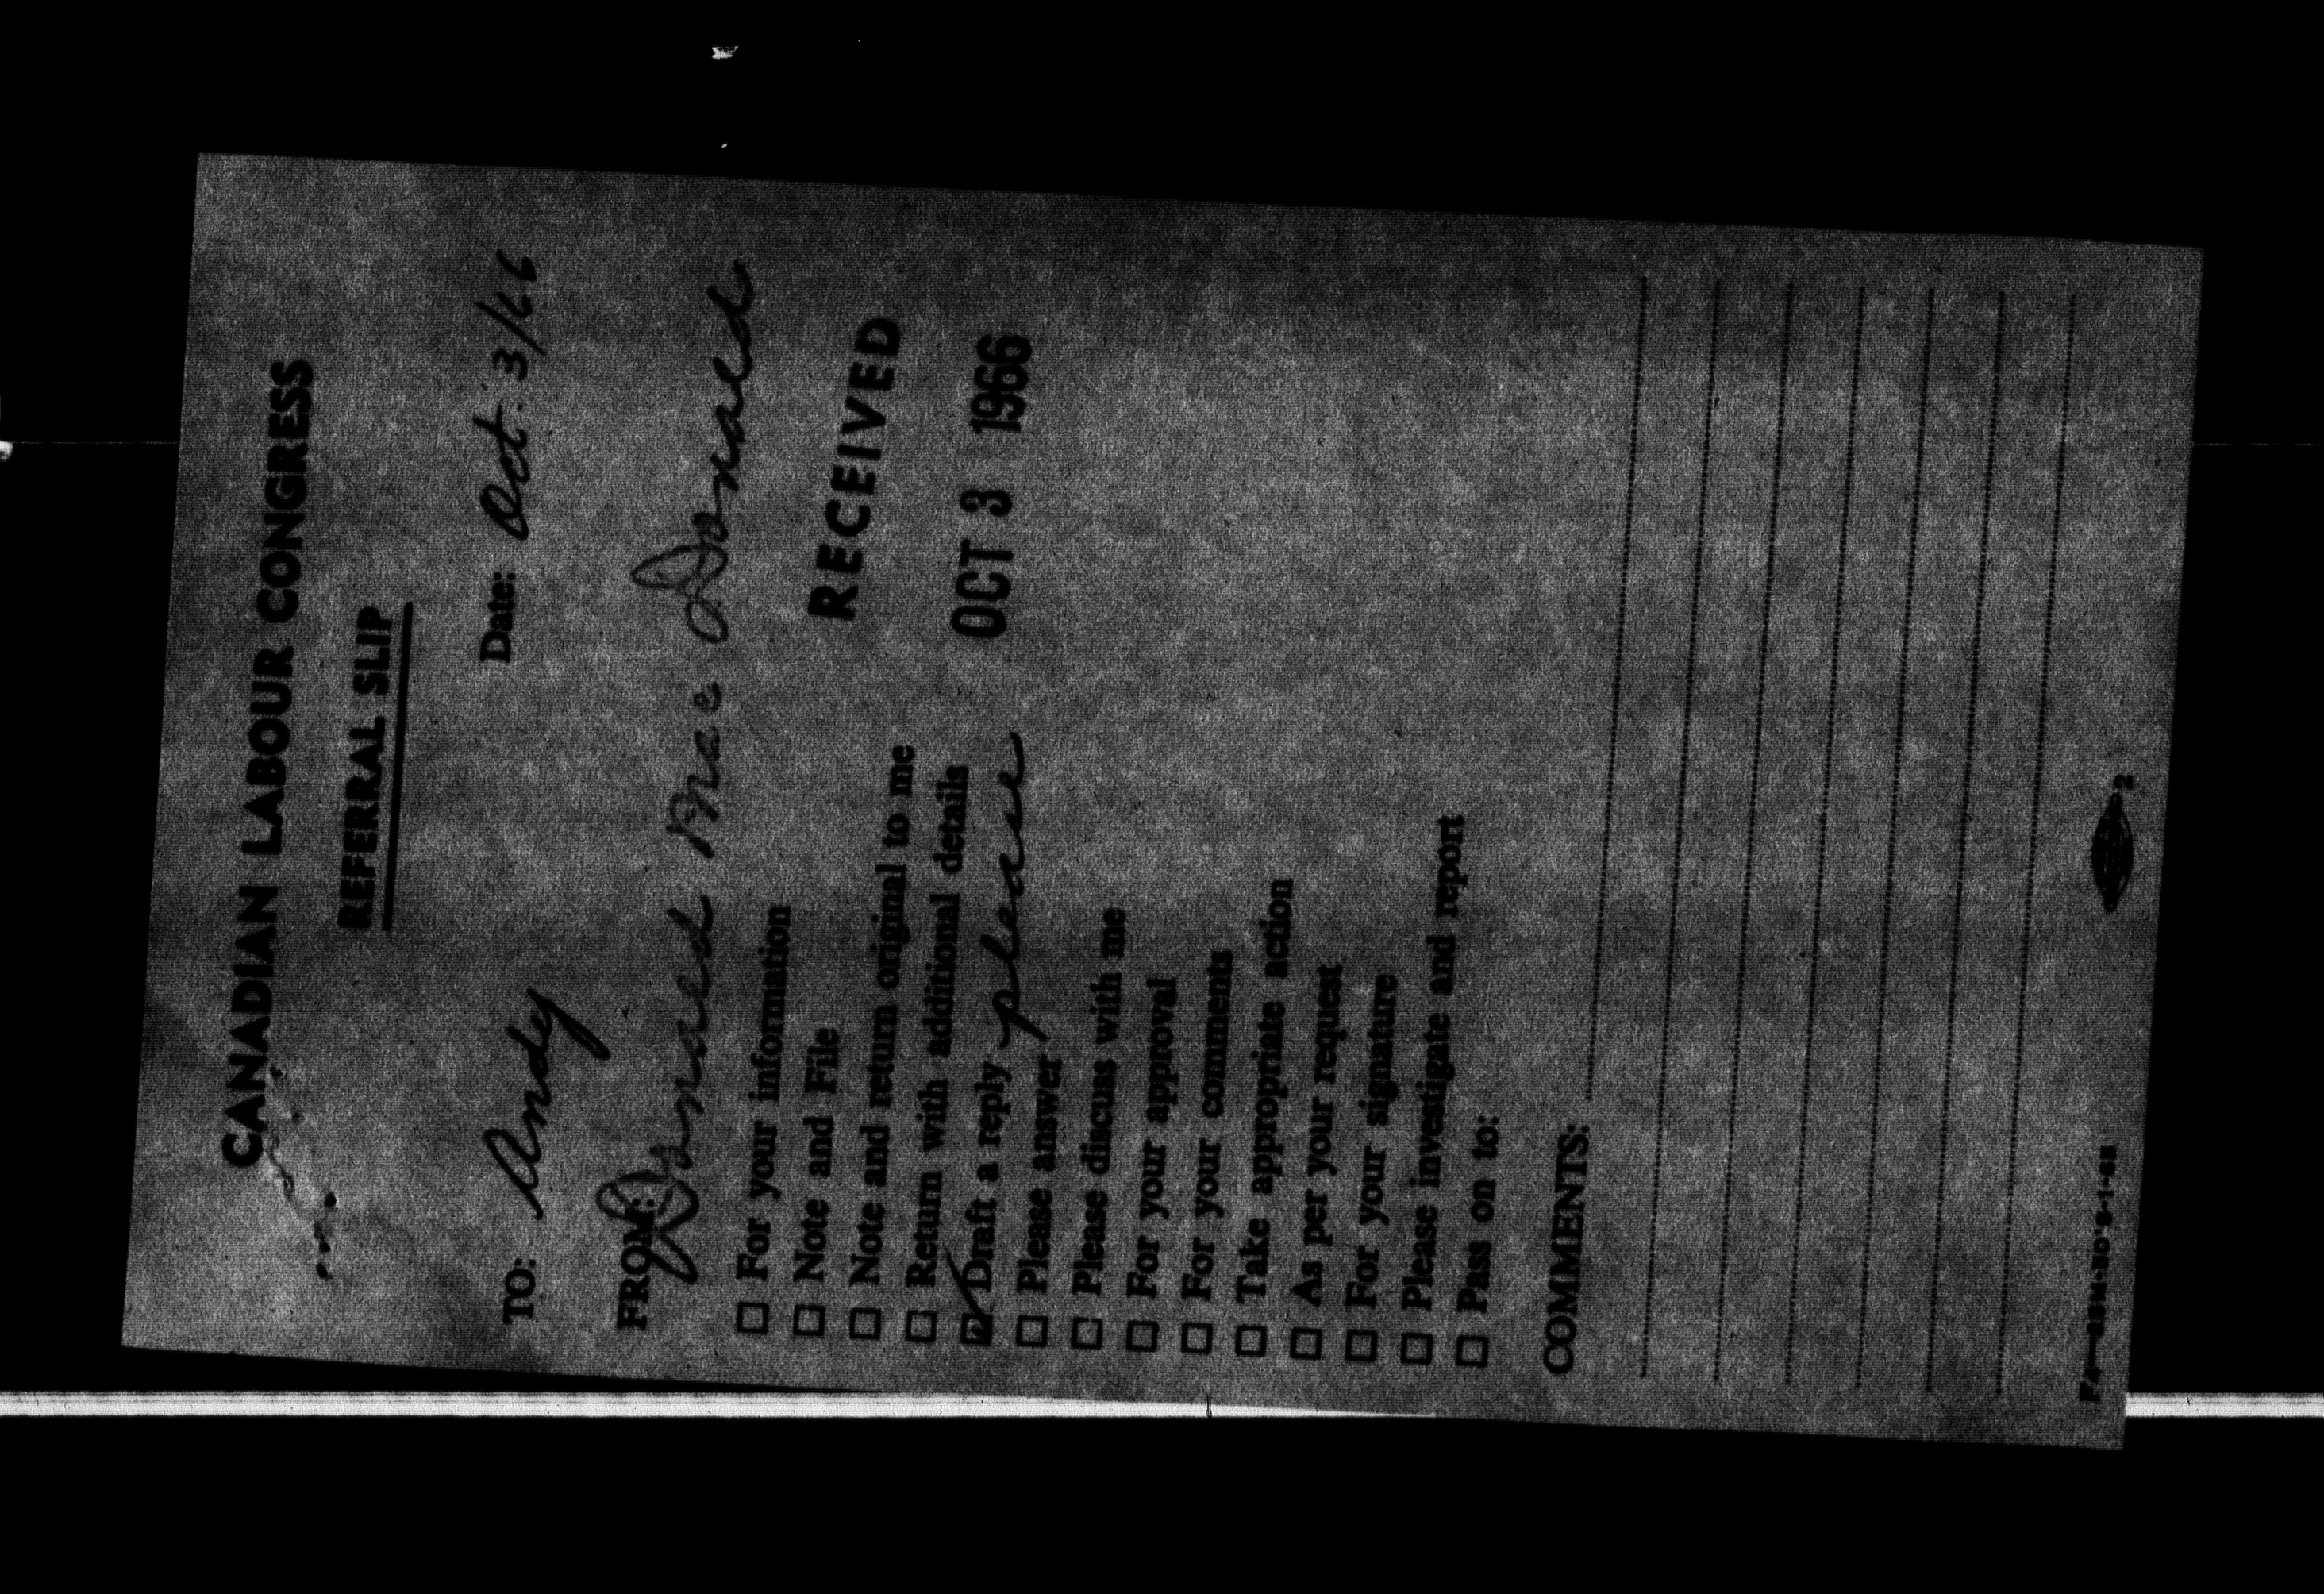 CANADIAN LABOUR CONGRESS
REFERRAL SLIP
TO: Andy Date: Oct. 3/66
FROM: Donald MacDonald
☐ For your information
☐ Note and File
RECEIVED
☐ Note and return original to me
☐ Return with additional details
OCT 3 1966
☑ Draft a reply please
☐ Please answer
☐ Please discuss with me
☐ For your approval
☐ For your comments
☐ Take appropriate action
☐ As per your request
☐ For your signature
☐ Please investigate and report
☐ Pass on to:
COMMENTS:
2